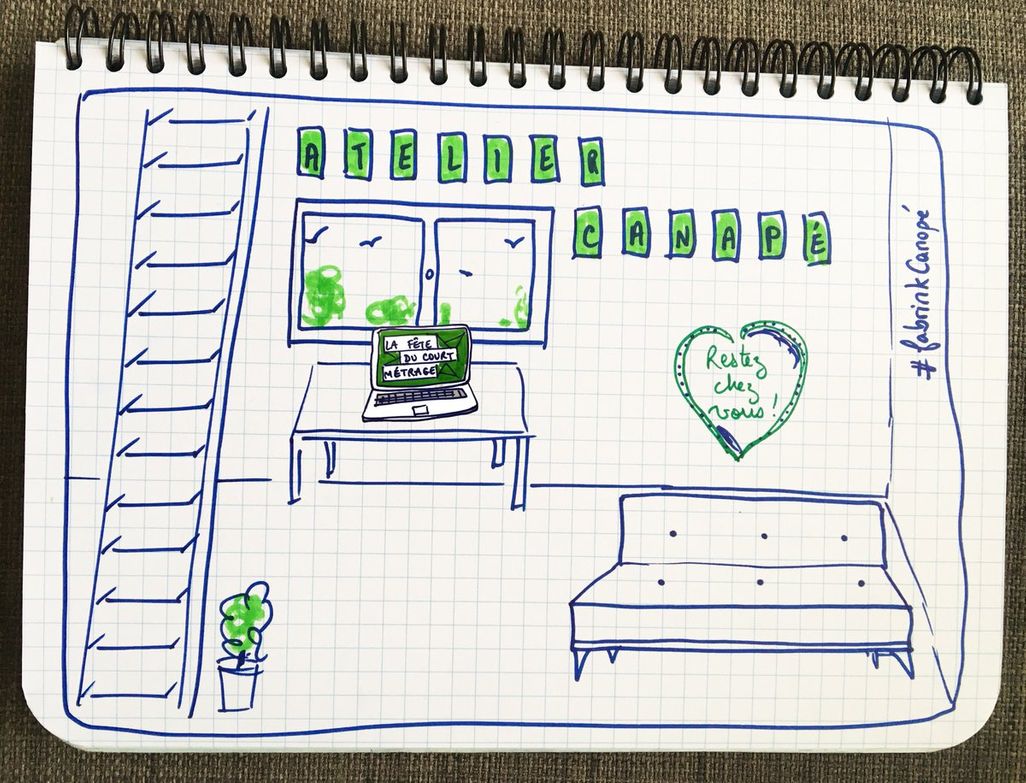 ATELIER
CANAPÉ
LA FÊTE
DU COURT
MÉTRAGE
Restez
chez
vous!
#fabrinkCanopé